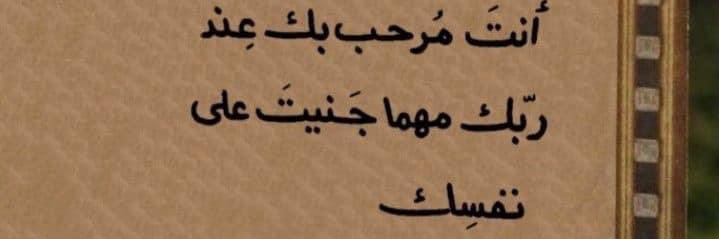 أنتَ مُرحب بك عِند
ربّك مهما جَنيتَ على
نفسِك